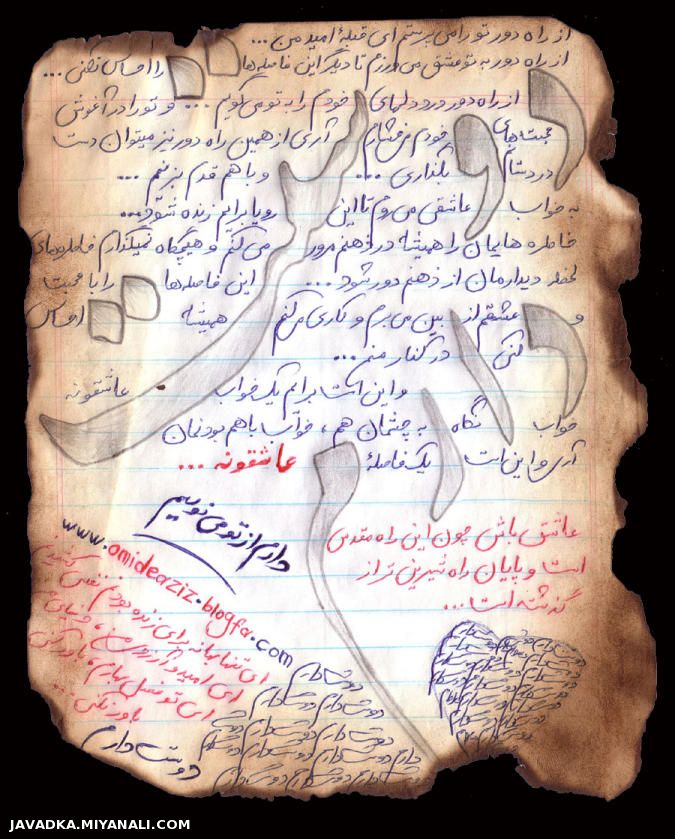 از راه دور تو را می پرستم ای قبلهٔ امید من ...
از راه دور به تو عشق می ورزم تا دیگر این فاصله‌ها را احساس نکنی ...
از راه دور درد دلهای خودم را به تو می گویم ... و تو را در آغوش
محبت های خودم می فشارم آری از همین راه دور نیز میتوان دست
در دستانم بگذاری ... و با هم قدم بزنیم ...
به خواب عاشقی می روم تا این رویا برایم زنده شود...
خاطره هایمان را همیشه در ذهنم مرور می کنم و هیچگاه نمیگذارم خاطره‌های
لحظه دیدارمان از ذهنم دور شود ... این فاصله‌ها را با محبت
و عشقم از بین می برم و کاری می کنم همیشه احساس
کنی در کنار منم ...
و این است برایم یک خواب عاشقونه
خواب نگاه به چشمان هم ، خواب با هم بودنمان
آری و این است یک فاصلهٔ عاشقونه ...
دارم از تو می نویسم
www.omideaziz.blogfa.com
عاشق باش چون این راه مقدس
است و پایان راه شیرین تر از
گذشته است...
ای تنها بهانه برای زنده بودنم نفس کشیدنم
ای امید و آرزوی من
ای تو فصل بهارم، باور کنی
باور نکنی ...
دوستت دارم
JAVADKA.MIYANALI.COM